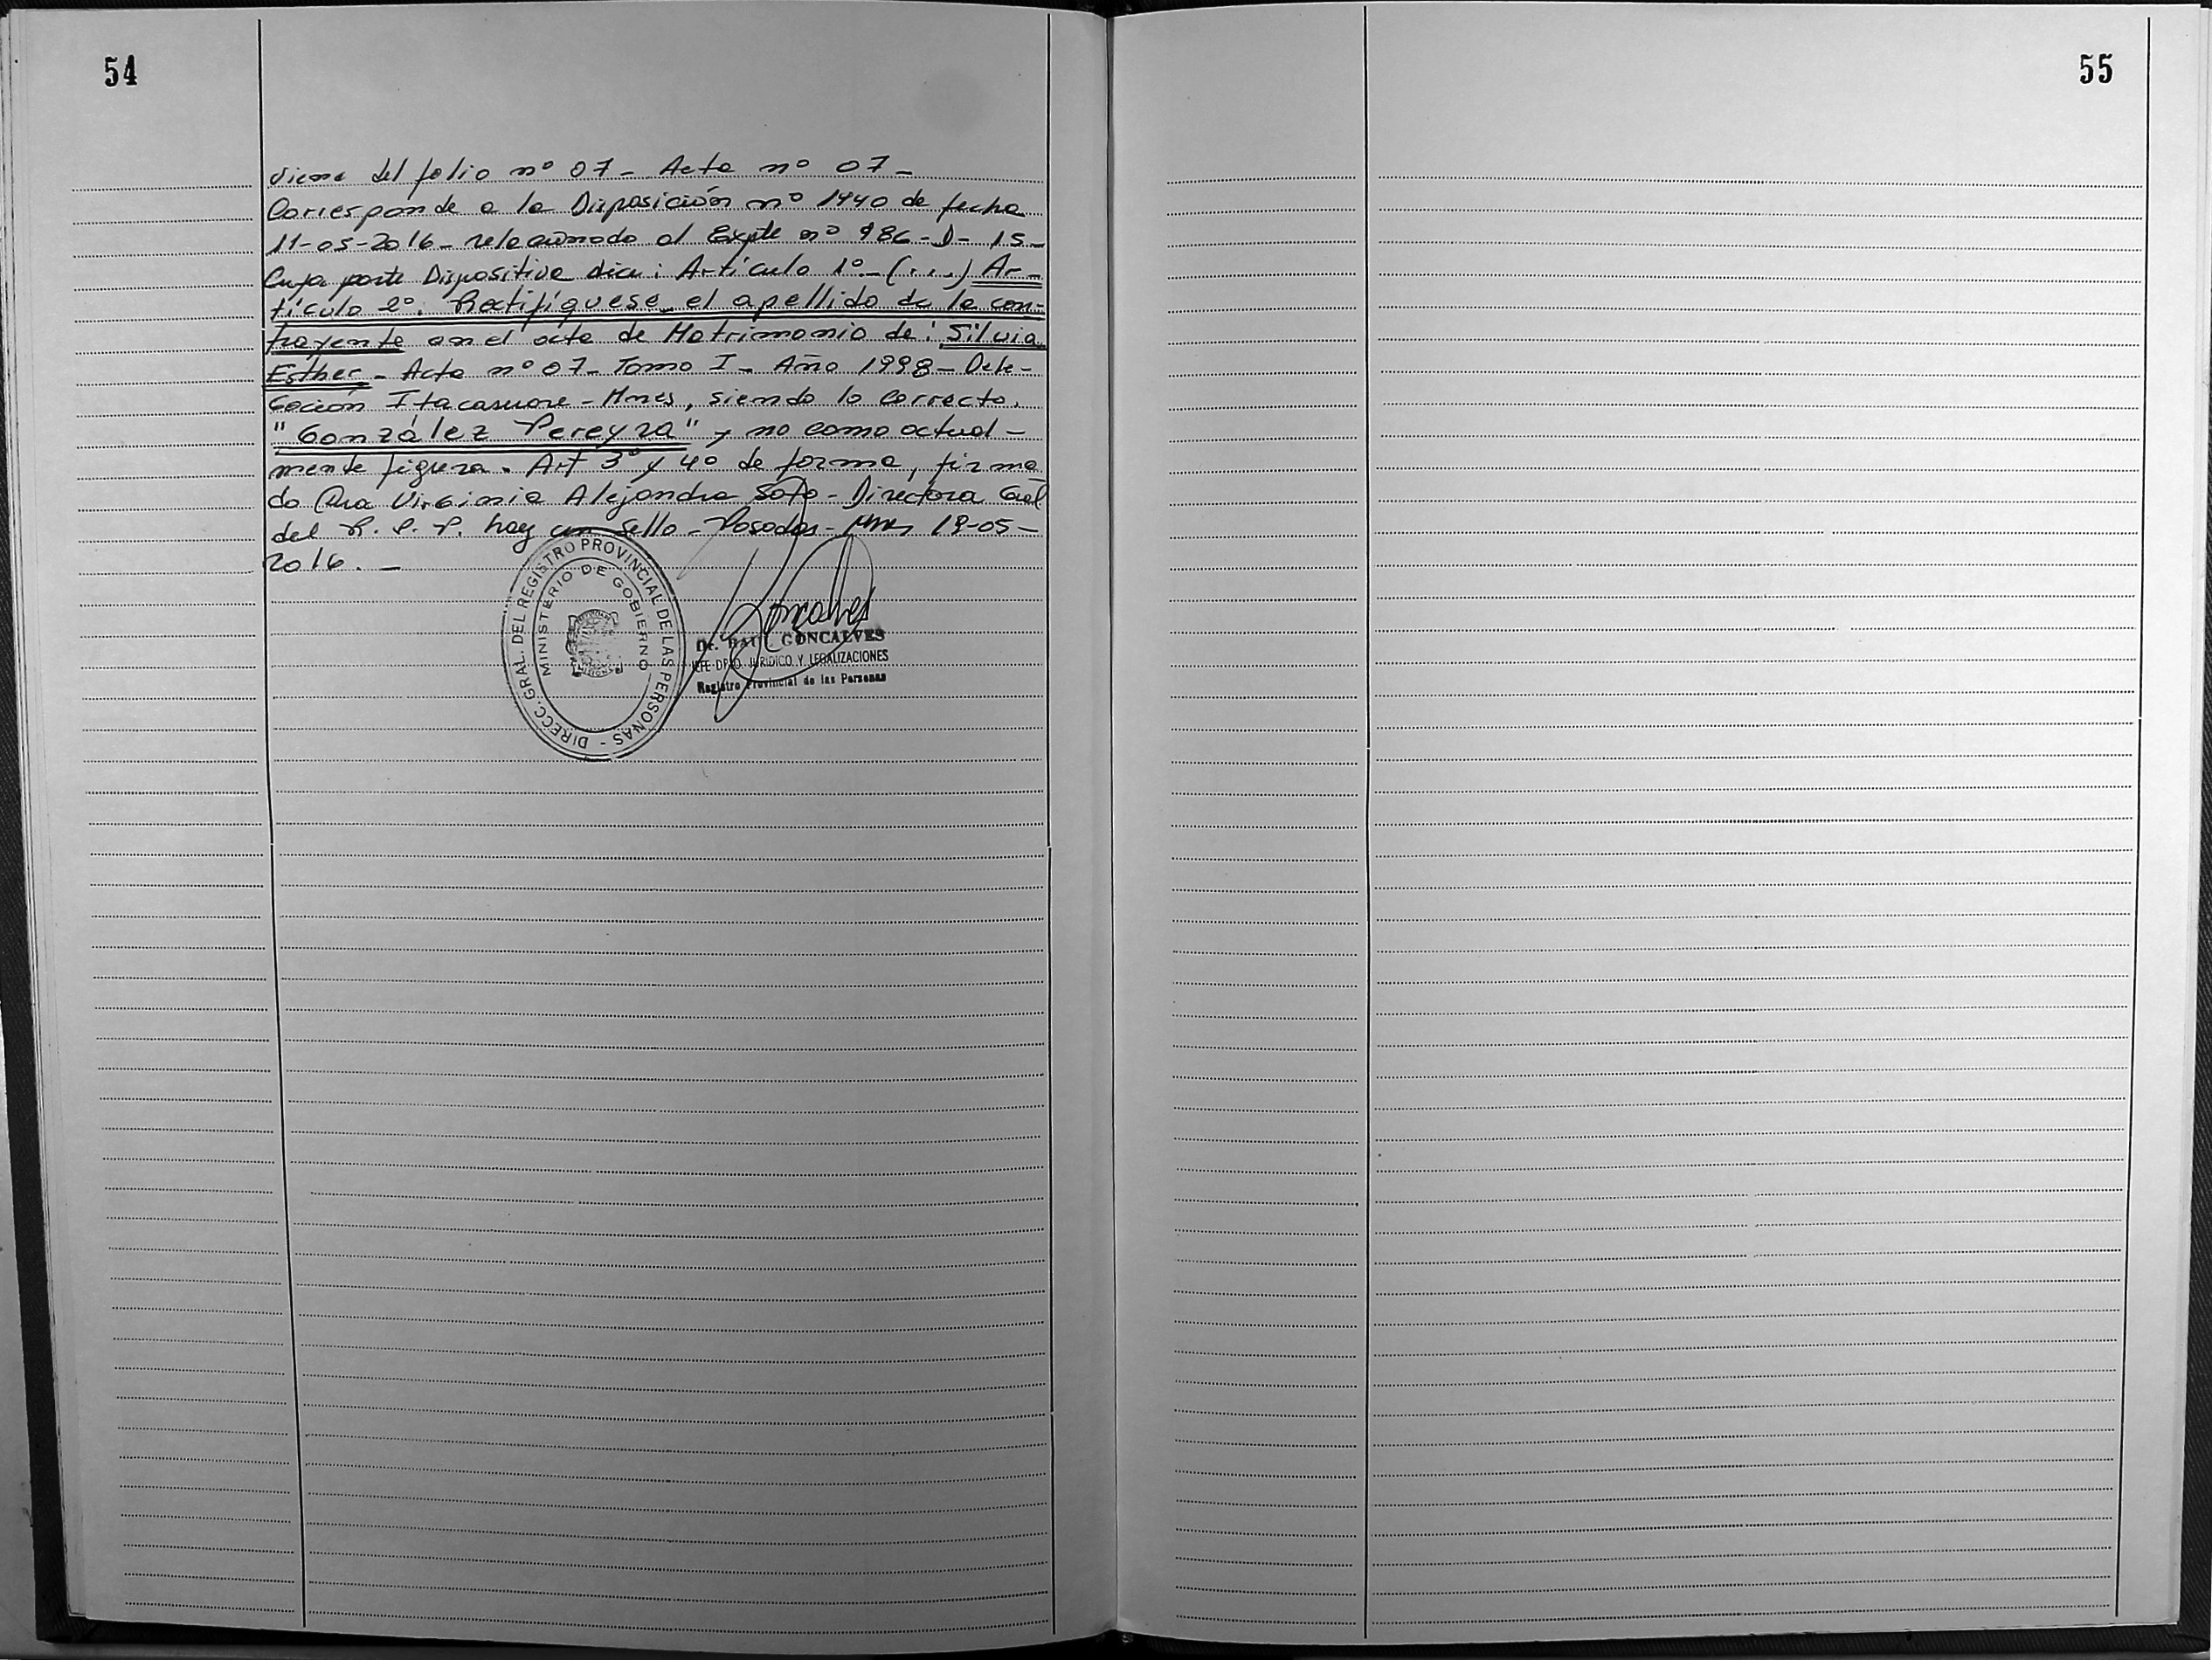 54
55
Viene del folio nº 07 - Acta nº 07 -
Corresponde a la Disposición nº 1440 de fecha
11-05-2016 - relacionado al Expte nº 986 - D - 15 -
Cuya parte Dispositiva dice: Artículo 1º - (...) Ar-
tículo 2º. Rectifíquese el apellido de la con-
trayente en el acta de Matrimonio de: Silvia
Esther - Acta nº 07 - Tomo I - Año 1998 - Dele-
gación Itacaruare - Mnes, siendo lo correcto.
"González Pereyra" y no como actual-
mente figura. Art 3º y 4º de forma, firma
do Dra Virginia Alejandra Soto - Directora Gral
del R. P. P. hay un sello - Posadas - Mnes 19-05-
2016. -
DIRECC. GRAL. DEL REGISTRO PROVINCIAL DE LAS PERSONAS -
MINISTERIO DE GOBIERNO
Goncalves
Dr. RAUL GONCALVES
JEFE DPTO. JURIDICO Y LEGALIZACIONES
Registro Provincial de las Personas